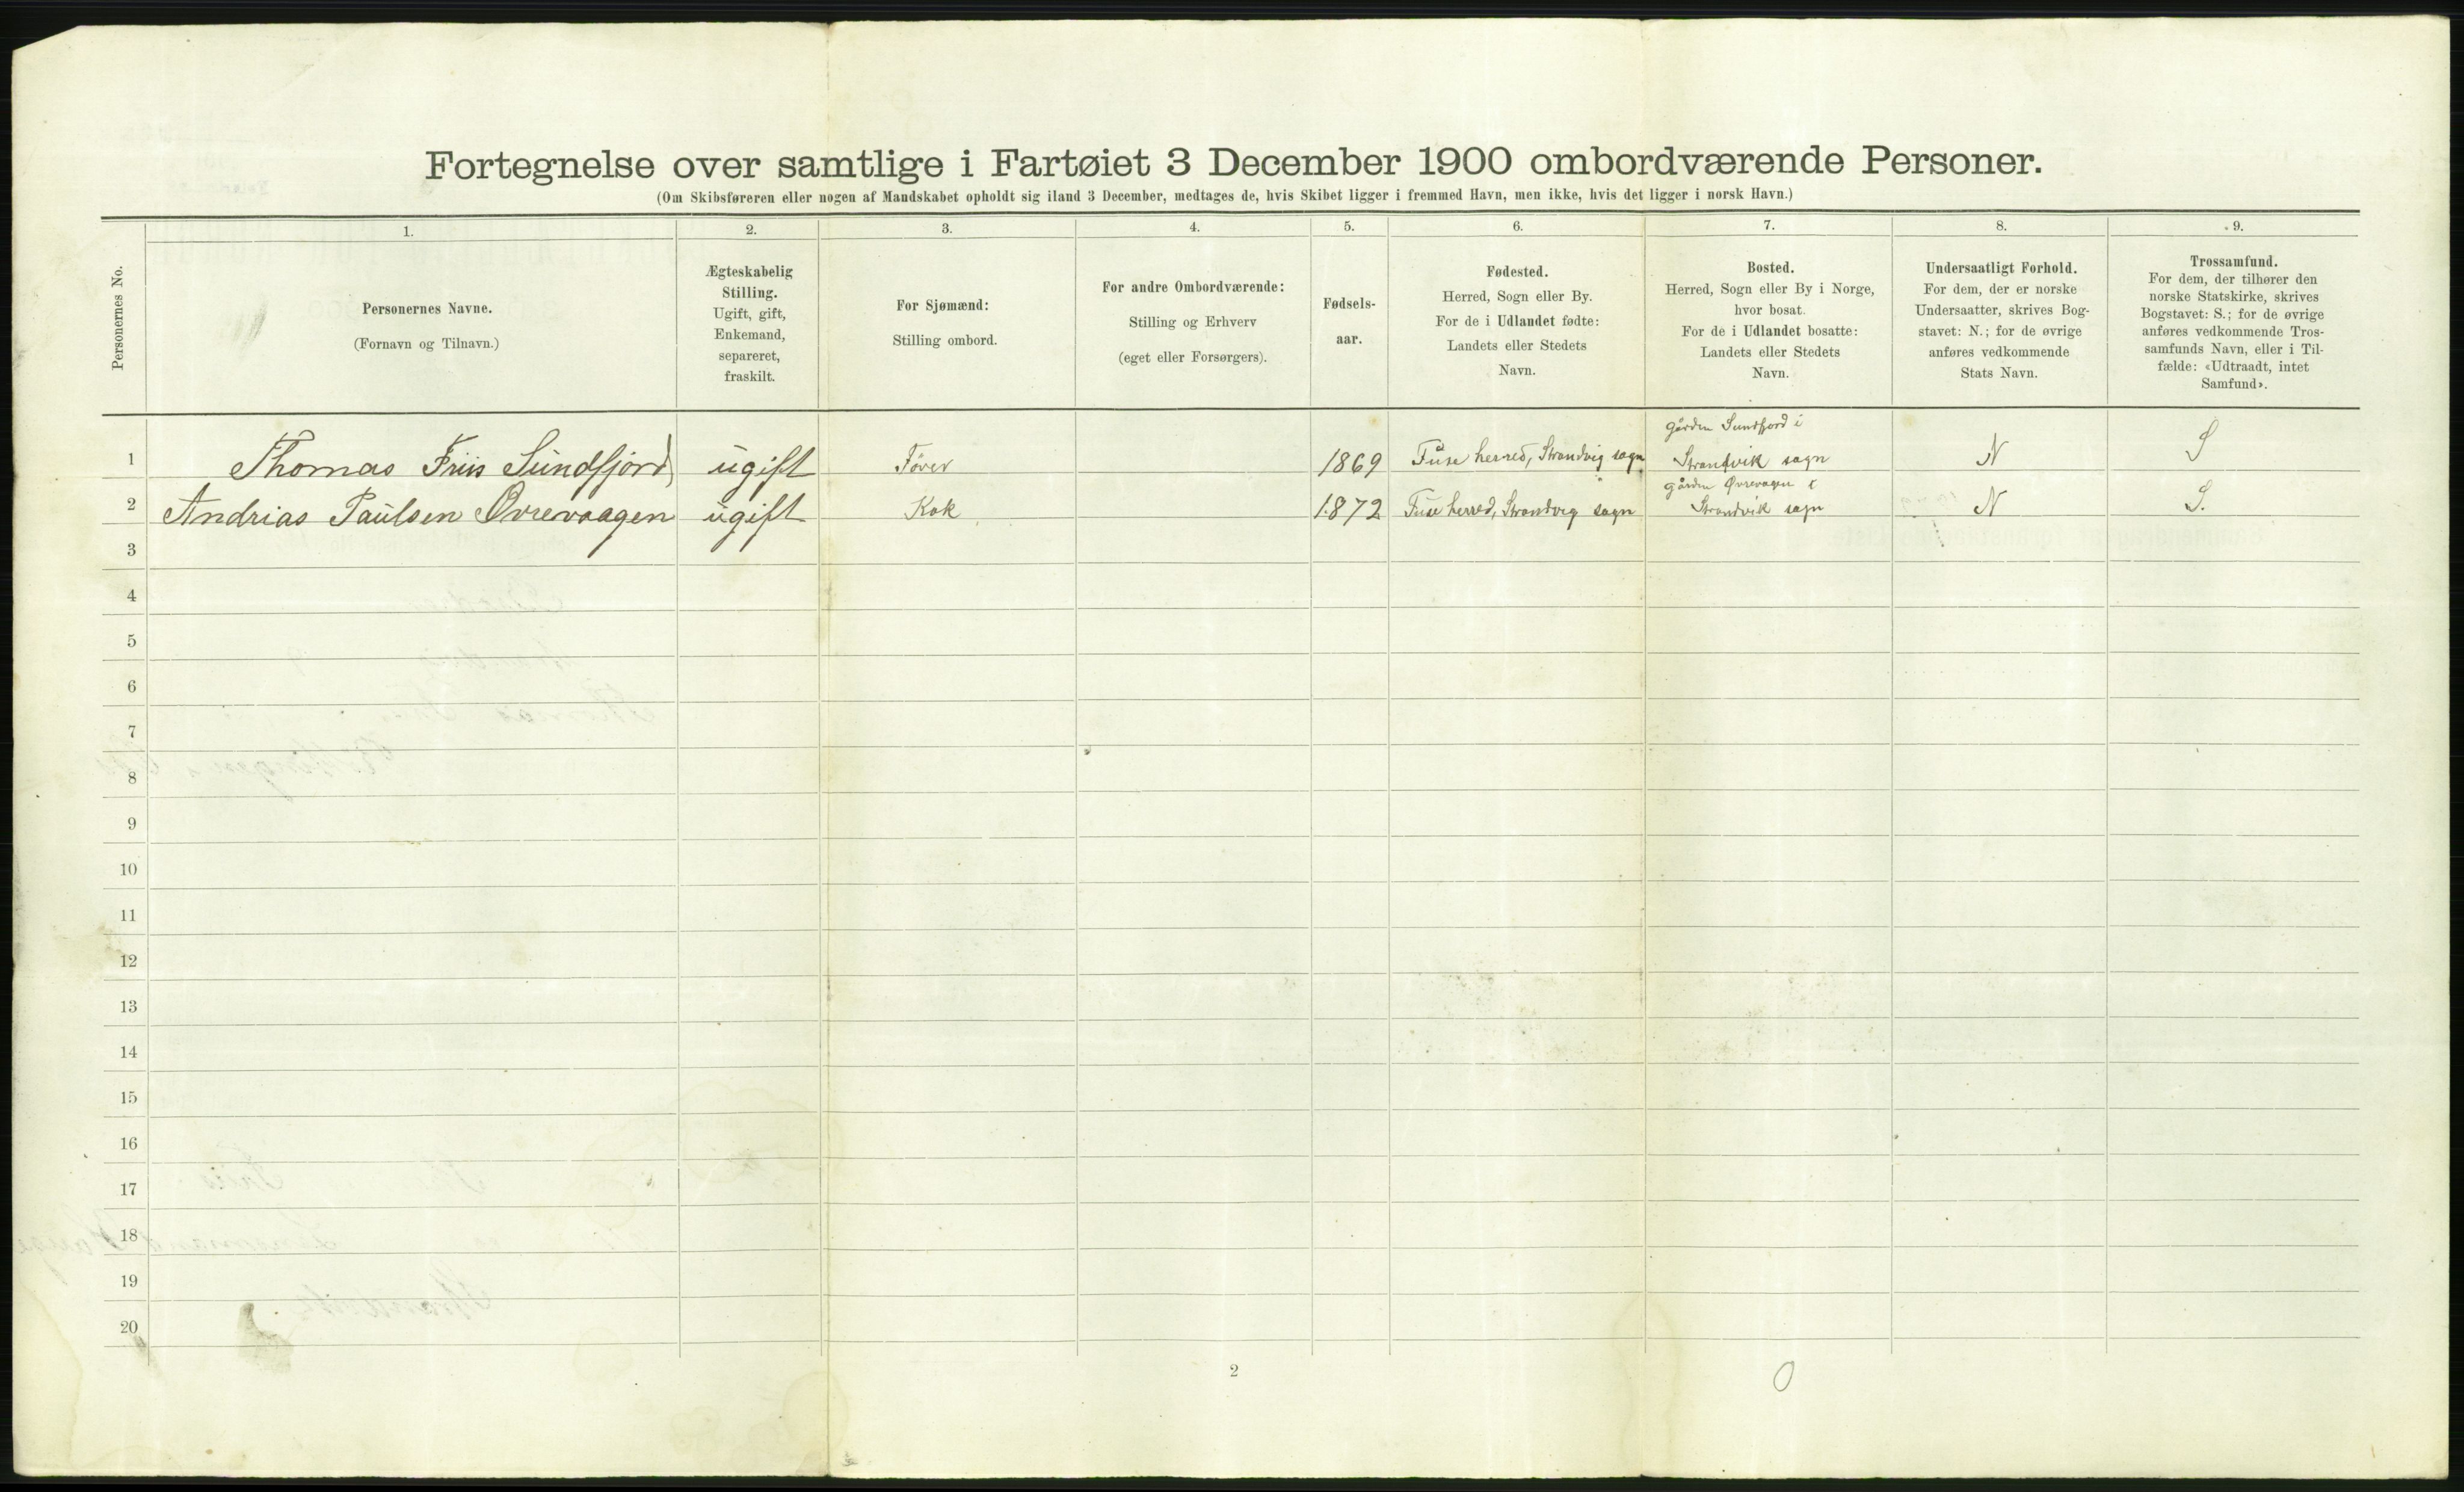 Fortegnelse over samtlige i Fartøiet 3 December 1900 ombordværende Personer.
(Om Skibsføreren eller nogen af Mandskabet opholdt sig iland 3 December, medtages de, hvis Skibet ligger i fremmed Havn, men ikke, hvis det ligger i norsk Havn.)
Personernes No.
1.
Personernes Navne.
(Fornavn og Tilnavn.)
2.
Ægteskabelig
Stilling.
Ugift, gift,
Enkemand,
separeret,
fraskilt.
3.
For Sjømænd:
Stilling ombord.
4.
For andre Ombordværende:
Stilling og Erhverv
(eget eller Forsørgers).
5.
Fødsels-
aar.
6.
Fødested.
Herred, Sogn eller By.
For de i Udlandet fødte:
Landets eller Stedets
Navn.
7.
Bosted.
Herred, Sogn eller By i Norge,
hvor bosat.
For de i Udlandet bosatte:
Landets eller Stedets
Navn.
8.
Undersaatligt Forhold.
For dem, der er norske
Undersaatter, skrives Bog-
stavet: N.; for de øvrige
anføres vedkommende
Stats Navn.
9.
Trossamfund.
For dem, der tilhører den
norske Statskirke, skrives
Bogstavet: S.; for de øvrige
anføres vedkommende Tros-
samfunds Navn, eller i Til-
fælde: «Udtraadt, intet
Samfund».
gården Sundfjord i
1 Thomas Friis Sundfjord ugift Fører 1869 Fuse herred, Strandvig sogn Strandvik sogn N S
gården Øvrevagen i
2 Andrias Paulsen Øvrevaagen ugift Kok 1872 Fuse herred, Strandvig sogn Strandvik sogn N S.
3
4
5
6
7
8
9
10
11
12
13
14
15
16
17
18
19
20
2
0